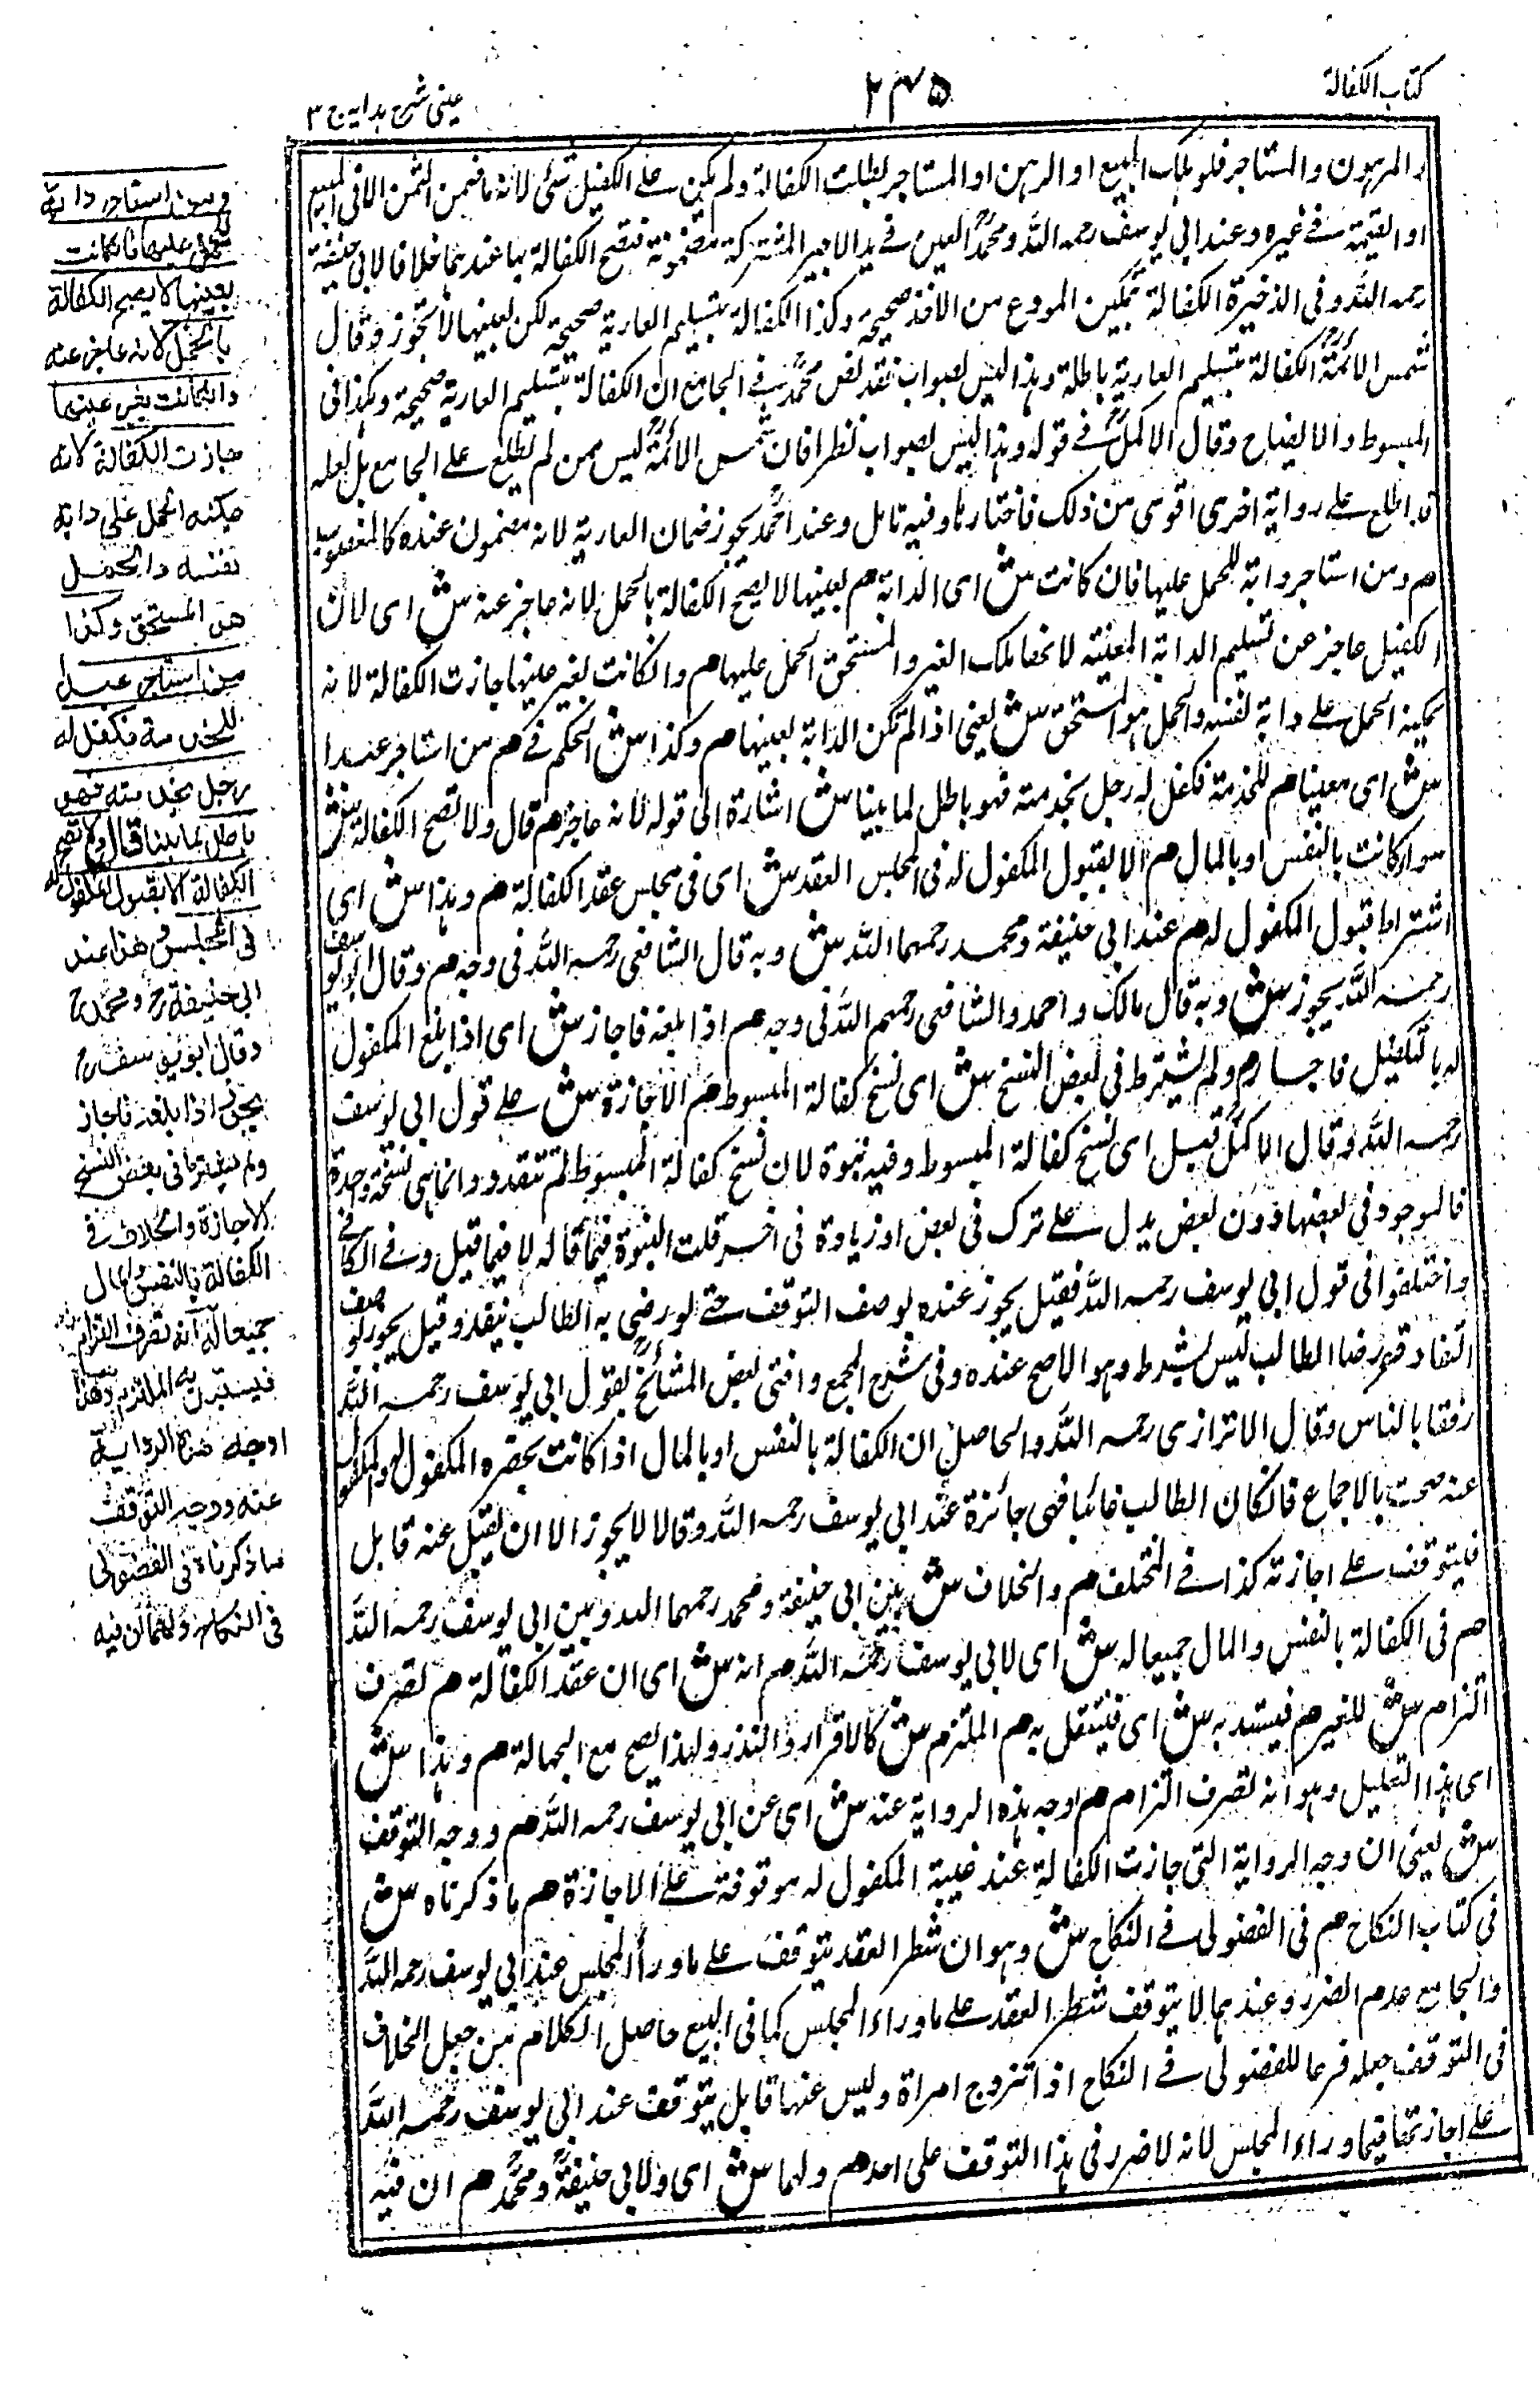 كتاب الكفالة
۲۴۵
عينى شرح هدايه ج ۳
والمرهون والمستاجر فلو هلك المبيع او الرهن او المستاجر بطلت الكفالة ولم يكن على الكفيل شئ لانه ما ضمن الثمن الا فى المبيع
او القيمة فى غيره وعند ابى يوسف رحمه الله ومحمدؒ العين فى يد الاجير المشتركة مضمونة فتصح الكفالة بها عندهما خلافا لابى حنيفة
رحمه الله وفى الذخيرة الكفالة بتمكين المودع من الاخذ صحيحة وكذا الكفالة بتسليم العارية صحيحة لكن بعينها لا تجوز وقال
شمس الائمةؒ الكفالة بتسليم العارية باطلة وهذا ليس بصواب فقد نص محمدؒ فى الجامع ان الكفالة بتسليم العارية صحيحة وهكذا فى
المبسوط والايضاح وقال الاكملؒ فى قوله وهذا ليس بصواب نظر افان شمس الائمةؒ ليس ممن لم يطلع على الجامع بل لعله
قد اطلع على رواية اخرى اقوى من ذلك فاختارها وفيه تامل وعند احمدؒ يجوز ضمان العارية لانه مضمون عنده كالمغصوب
هم ومن استاجر دابة للحمل عليها فان كانت ش اى الدابة هم بعينها لا يصح الكفالة بالحمل لانه عاجز عنه ش اى لان
الكفيل عاجز عن تسليم الدابة المعينة لانها ملك الغير والمستحق الحمل عليها هم وان كانت بغير عينها جازت الكفالة لانه
يمكنه الحمل على دابة نفسه والحمل هو المستحق ش يعنى اذا لم تكن الدابة بعينها هم وكذا ش الحكم فى هم من استاجر عبدا
ش اى معينا هم للخدمة فكفل له رجل بخدمته فهو باطل لما بينا ش اشارة الى قوله لانه عاجز هم قال ولا تصح الكفالة ش
سواء كانت بالنفس او بالمال هم الا بقبول المكفول له فى المجلس العقد ش اى فى مجلس عقد الكفالة هم وهذا ش اى
اشتراط قبول المكفول له هم عند ابى حنيفة ومحمد رحمهما الله ش وبه قال الشافعى رحمه الله فى وجه هم وقال ابو يوسف
رحمه الله يجوز ش وبه قال مالك واحمد والشافعى رحمهم الله فى وجه هم اذا بلغه فاجاز ش اى اذا بلغ المكفول
له بالتكفيل فاجاز هم ولم يشترط فى بعض النسخ ش اى نسخ كفالة المبسوط هم الاجازة ش على قول ابى يوسف
رحمه الله وقال الاكملؒ قيل اى نسخ كفالة المبسوط وفيه نبوة لان نسخ كفالة المبسوط لم تتعدد وانما هى نسخة واحدة
فالموجود فى بعضها دون بعض يدل على ترك فى بعض او زيادة فى اخر قلت النبوة فيما قاله لا فيما قيل وفى الكافى
واختلفوا فى قول ابى يوسف رحمه الله فقيل يجوز عنده بوصف التوقف حتى لو رضى به الطالب ينفذ وقيل يجوز بوصف
النفاذ ورضا الطالب ليس بشرط وهو الاصح عنده وفى شرح المجمع وافتى بعض المشائخؒ بقول ابى يوسف رحمه الله
رفقا بالناس وقال الاترازى رحمه الله والحاصل ان الكفالة بالنفس او بالمال اذا كانت بحضرة المكفول له والمكفول
عنه صحت بالاجماع فان كان الطالب غائبا فهى جائزة عند ابى يوسف رحمه الله وقالا لا يجوز الا ان يقبل عنه قابل
فيتوقف على اجازته كذا فى المختلف هم والخلاف ش بين ابى حنيفة ومحمد رحمهما الله وبين ابى يوسف رحمه الله
هم فى الكفالة بالنفس والمال جميعا له ش اى لابى يوسف رحمه الله هم انه ش اى ان عقد الكفالة هم تصرف
التزام ش للغير هم فيستبد به ش اى فيستقل به هم الملتزم ش كالاقرار والنذر ولهذا يصح مع الجهالة هم وهذا ش
اى هذا التعليل وهو انه تصرف التزام هم وجه هذه الرواية عنه ش اى عن ابى يوسف رحمه الله هم ووجه التوقف
ش يعنى ان وجه الرواية التى جازت الكفالة عند غيبة المكفول له موقوفة على الاجازة هم ما ذكرناه ش
فى كتاب النكاح هم فى الفضولى فى النكاح ش وهو ان شطر العقد يتوقف على ما وراء المجلس عند ابى يوسف رحمه الله
والجامع عدم الضرر وعندهما لا يتوقف شطر العقد على ما وراء المجلس كما فى البيع حاصل الكلام من جعل الخلاف
فى التوقف جعله فرعا للفضولى فى النكاح اذا تزوج امراة وليس عنها قابل يتوقف عند ابى يوسف رحمه الله
على اجازتها فيما وراء المجلس لانه لا ضرر فى هذا التوقف على احد هم ولهما ش اى ولابى حنيفةؒ ومحمدؒ هم ان فيه
ومن استاجر دابة
للحمل عليها فان كانت
بعينها لا يصح الكفالة
بالحمل لانه عاجز عنه
وان كانت بغير عينها
جازت الكفالة لانه
يمكنه الحمل على دابة
نفسه والحمل
هو المستحق وكذا
من استاجر عبدا
للخدمة فكفل له
رجل بخدمته فهو
باطل لما بينا قال ولا تصح
الكفالة الا بقبول المكفول له
فى المجلس وهذا عند
ابى حنيفةؒ ومحمدؒ
وقال ابو يوسفؒ
يجوز اذا بلغه فاجاز
ولم يشترط فى بعض النسخ
الاجازة والخلاف فى
الكفالة بالنفس والمال
جميعا له انه تصرف التزام
فيستبد به الملتزم وهذا
وجه هذه الرواية
عنه ووجه التوقف
ما ذكرناه فى الفضولى
فى النكاح ولهما ان فيه